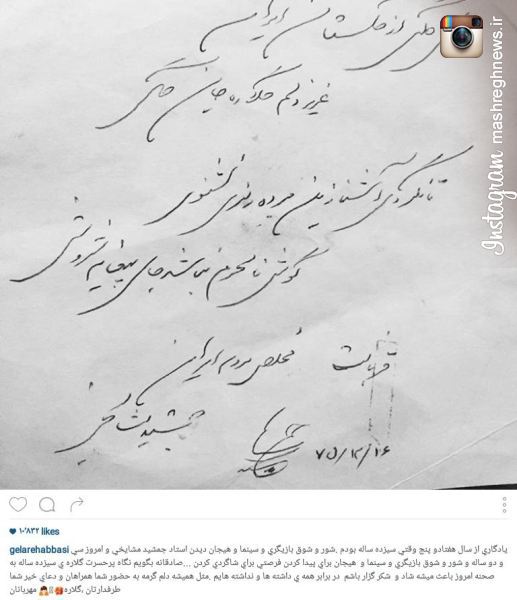 گلی از گلستان ایران
عزیز دلم گلاره جان
تا نگردی آشنا زین پرده رمزی نشنوی
گوش نامحرم نباشد جای پیغام سروش
قربانت
مخلص مردم ایران
جمشید مشایخی
۷۵/۱۲/۱۶
Instagram mashreghnews.ir
۱۰٬۸۳۲ likes
gelarehabbasi يادگاري از سال هفتادو پنج وقتي سيزده ساله بودم .شور و شوق بازيگري و سينما و هيجان ديدن استاد جمشيد مشايخي و امروز سي
و دو ساله و شور و شوق بازيگري و سينما و هيجان براي پيدا كردن فرصتي براي شاگردي كردن ...صادقانه بگويم نگاه پرحسرت گلاره ي سيزده ساله به
صحنه امروز باعث ميشه شاد و شكر گزار باشم در برابر همه ي داشته ها و نداشته هايم .مثل هميشه دلم گرمه به حضور شما همراهان و دعاي خير شما
مهربانان 🙏 طرفدارتان ,گلاره